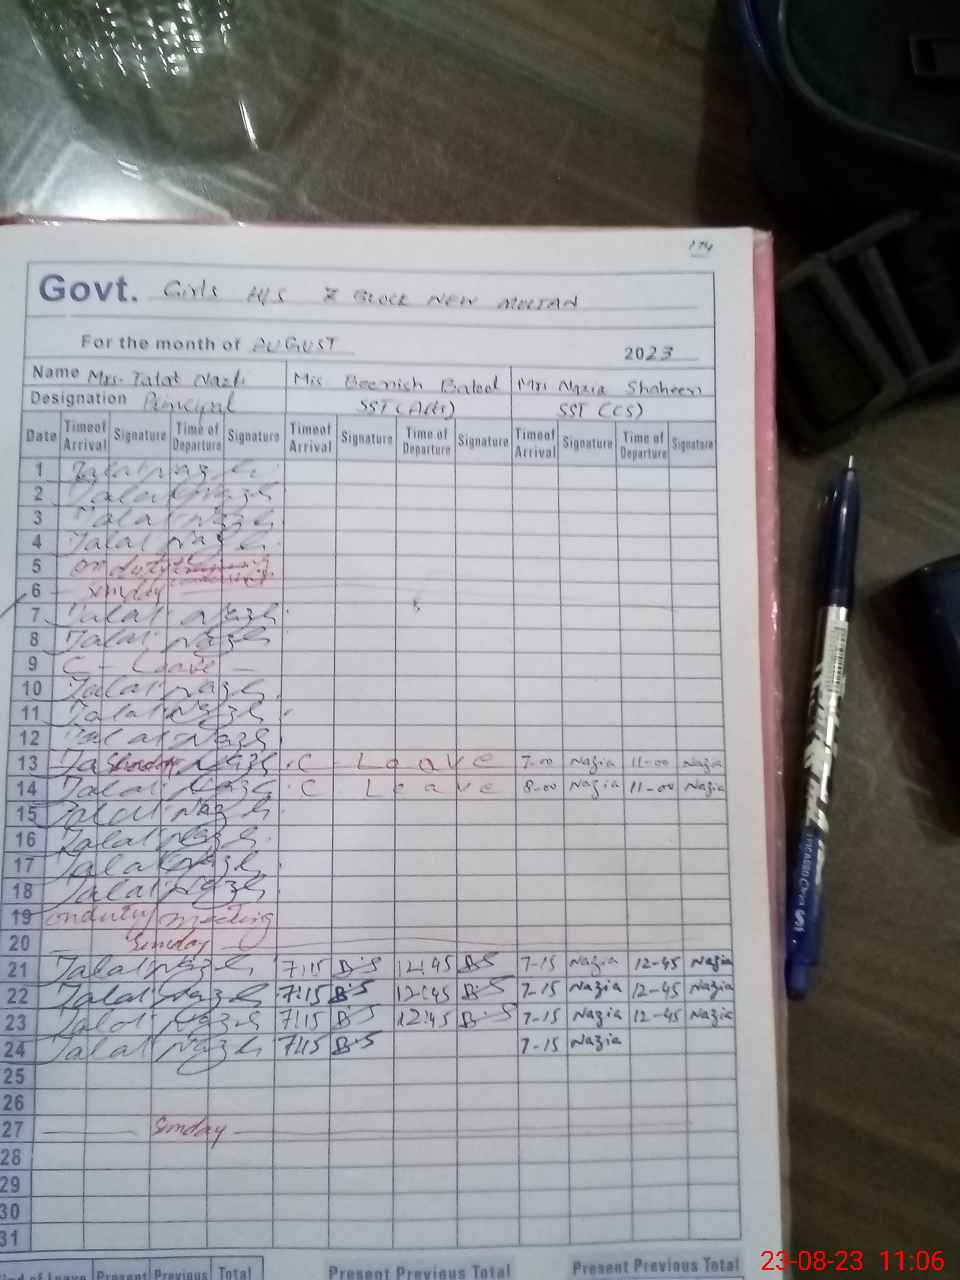 174
Govt. Girls H/S Z BLOCK NEW MULTAN
For the month of AUGUST 2023
Name Mrs. Talat Nazli Mis Beenish Mrs Nazia Shaheen
Designation Principal SST (Arts) SST (CS)
Date Time of Arrival Signature Time of Departure Signature Time of Arrival Signature Time of Departure Signature Time of Arrival Signature Time of Departure Signature
1 Talat Nazli
2 Talat Nazli
3 Talat Nazli
4 Talat Nazli
5 on duty
6 Sunday
7 Talat Nazli
8 Talat Nazli
9 C - Leave -
10 Talat Nazli
11 Talat Nazli
12 Talat Nazli
13 Sunday Nazli C Leave 7-00 Nazia 11-00 Nazia
14 Talat Nazli C Leave 8-00 Nazia 11-00 Nazia
15 Talat Nazli
16 Talat Nazli
17 Talat Nazli
18 Talat Nazli
19 on duty meeting
20 Sunday
21 Talat Nazli 7:15 B.S 12:45 B.S 7-15 Nazia 12-45 Nazia
22 Talat Nazli 7:15 B.S 12:45 B.S 7-15 Nazia 12-45 Nazia
23 Talat Nazli 7:15 B.S 12:45 B.S 7-15 Nazia 12-45 Nazia
24 Talat Nazli 7:15 B.S 7-15 Nazia
25
26
27 Sunday
28
29
30
31
of Leave Present Previous Total Present Previous Total Present Previous Total
PICASSO
23-08-23 11:06